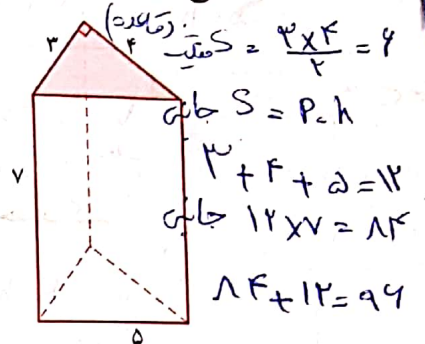 (قاعده)
۳ ۴
S مثلث = ۳×۴/۲ = ۶
S جانبی = P.h
۷
۳+۴+۵=۱۲
جانبی ۱۲×۷=۸۴
۸۴+۱۲=۹۶
۵